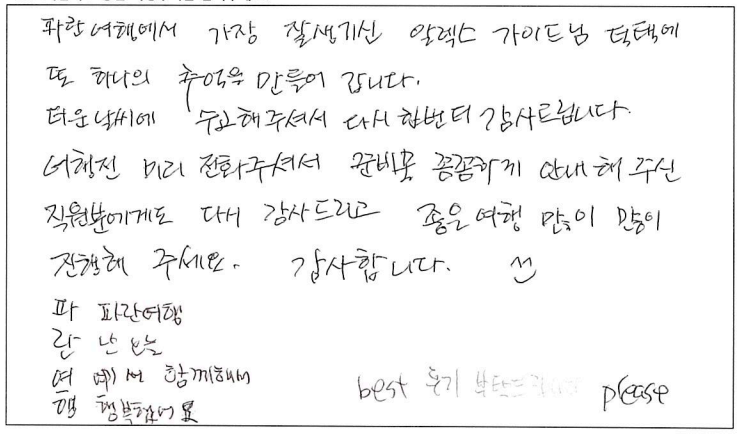 파란여행에서 가장 잘생기신 알렉스 가이드님 덕택에
또 하나의 추억을 만들어 갑니다.
더운날씨에 수고해주셔서 다시한번더 감사드립니다.
여행전 미리 전화주셔서 준비물 꼼꼼하게 안내해 주신
직원분에게도 다시 감사드리고 좋은여행 많이 많이
진행해 주세요. 감사합니다.
파 파란여행
란 난 오늘
여 예서 함께해서
행 행복했어요
best 후기 부탁드립니다 please